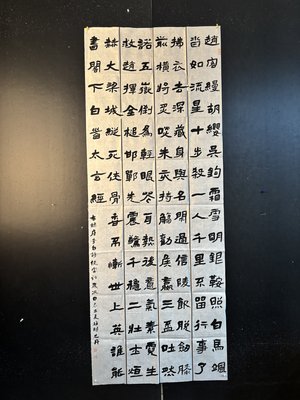 趙客縵胡纓吳鉤霜雪明銀鞍照白馬颯
沓如流星十步殺一人千里不留行事了
拂衣去深藏身與名閑過信陵飲脫劍膝
前橫將炙啖朱亥持觴勸侯嬴三盃吐然
諾五嶽倒為輕眼花耳熱後意氣素霓生
救趙揮金槌邯鄲先震驚千秋二壯士烜
赫大梁城縱死俠骨香不慚世上英誰能
書閣下白首太玄經